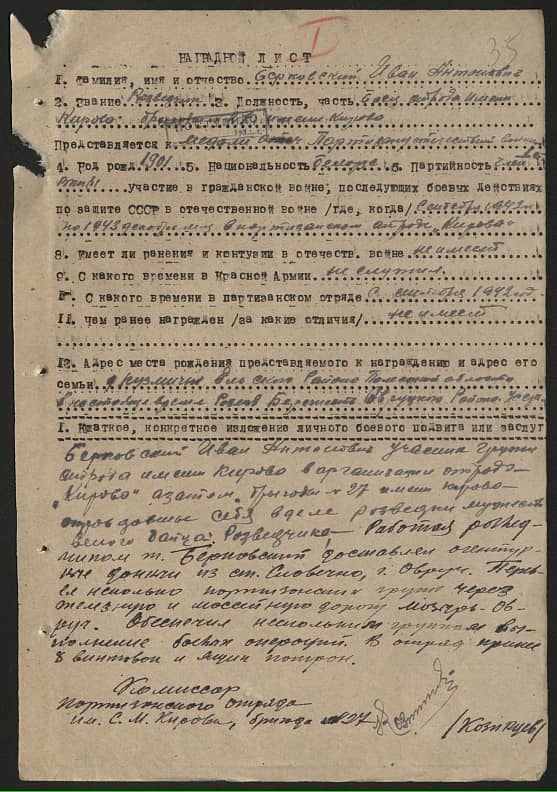 I 35
НАГРАДНОЙ ЛИСТ
1. Фамилия, имя и отчество Берковский Иван Антонович
2. Звание 3. Должность, часть боец отряда имени
Кирова имени Кирова
Представляется к медали Партизану отечествен войны
4. Год рожд 1901 5. Национальность белорус 6. Партийность член
участие в гражданской войне, последующих боевых действиях
по защите СССР в отечественной войне /где, когда/ Сентябрь 1942г.
по 1943 декабрь мц в партизанском отряде Кирова
8. Имеет ли ранения и контузии в отечеств. войне не имеет
9. С какого времени в Красной Армии не служил
С какого времени в партизанском отряде С сентября 1942 год.
11. Чем ранее награжден /за какие отличия/ не имеет
12. Адрес места рождения представляемого к награждению и адрес его
семьи. Ельского Района Полеской области
в настоящее время Района
I. Краткое, конкретное изложение личного боевого подвига или заслуг
Берковский Иван Антонович участник групы
отряда имени Кирова в организации отряда
"Кирова" а затем Бригады № 27 имени Кирова
себя в деле розведки
бойца Розведчика. Работая розвед-
чиком т. Берковский доставлял агентур-
ные данные из ст. Словечно, г. Овруч. Перь-
вел несколько портизонских групп через
железную и шоссейную дорогу Мозырь-Ов-
руч. Обеспечил нескольким группам вы-
полнение боевых операций. В отряд принес
8 винтовок и ящик потрон.
Комиссар
портизонского отряда
им. С. М. Кирова, бригада №27 /Козинцев/